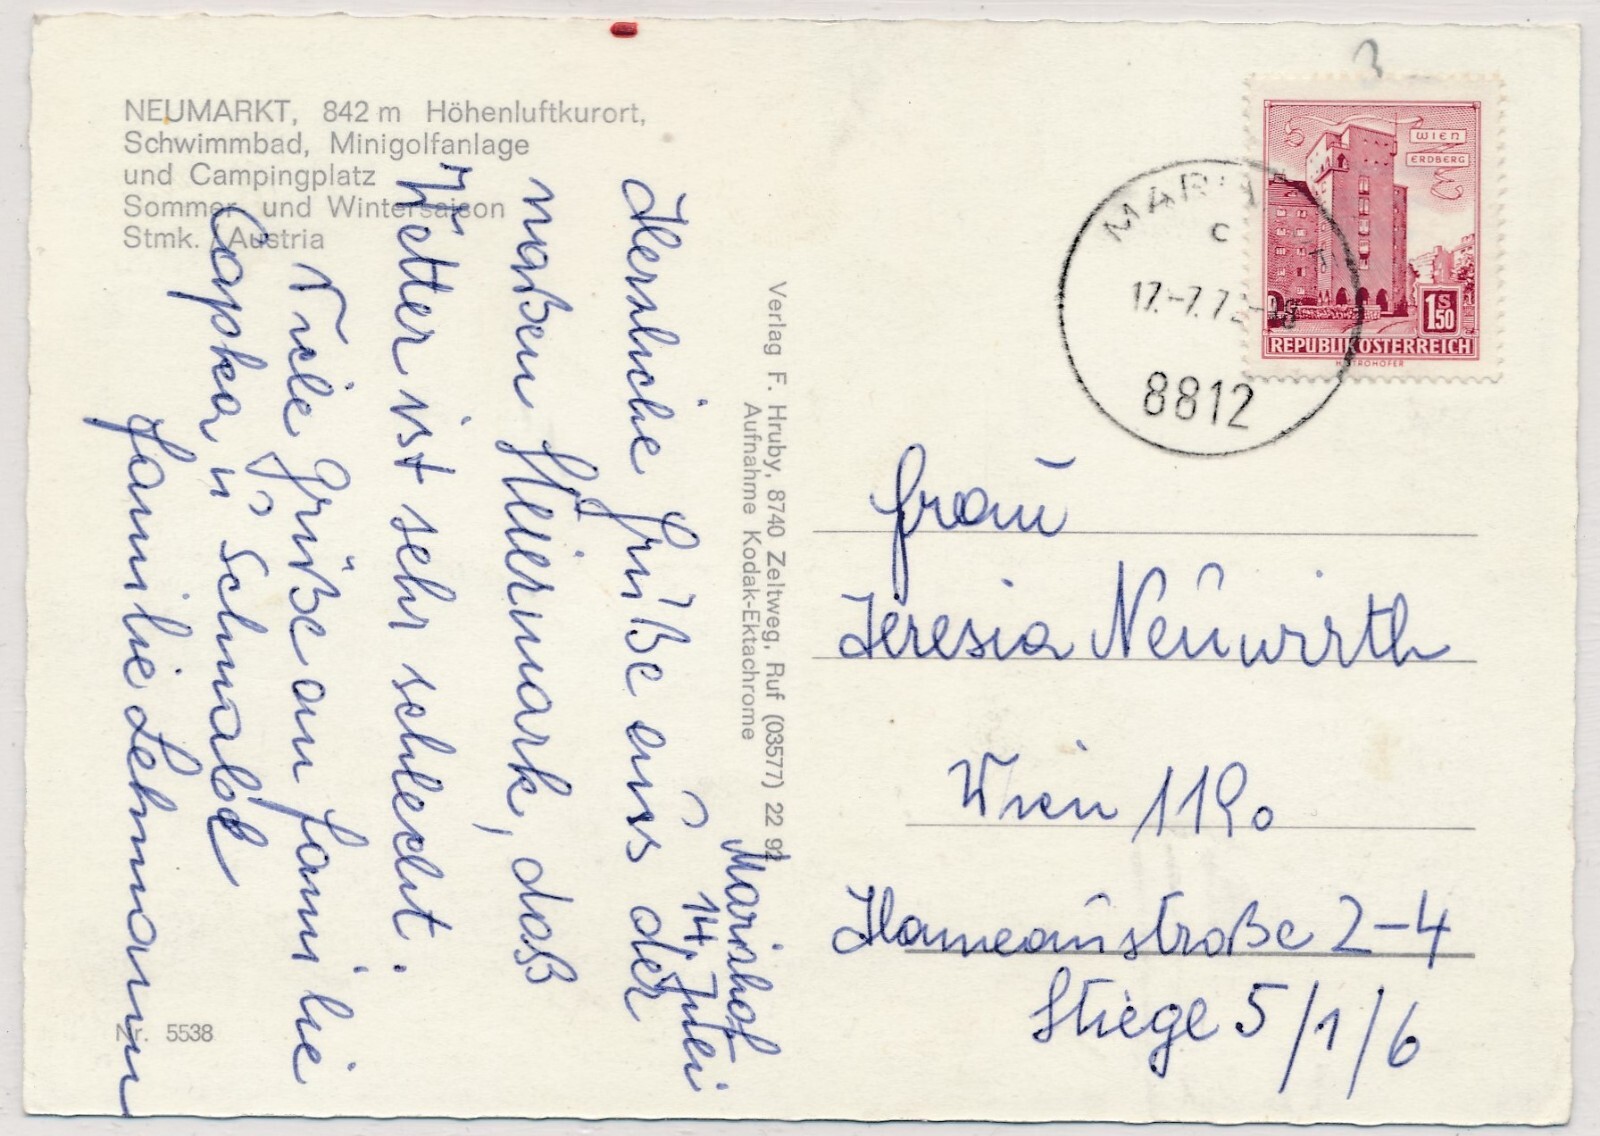 NEUMARKT, 842 m Höhenluftkurort,
Schwimmbad, Minigolfanlage
und Campingplatz
Sommer- und Wintersaison
Stmk. Austria
Mariahof
14. Julei
Herzliche Grüße aus der
naßen Steiermark, daß
Wetter ist sehr schlecht.
Viele Grüße an Familie
Capka u Schmalod
Familie Lehmann
Verlag F. Hruby, 8740 Zeltweg, Ruf (03577) 22 92
Aufnahme Kodak-Ektachrome
Nr. 5538
3
WIEN
ERDBERG
1S50
REPUBLIK ÖSTERREICH
c
17.-7.7
8812
Frau
Teresia Neuwirth
Wien 1190
Hameaustraße 2-4
Stiege 5/1/6